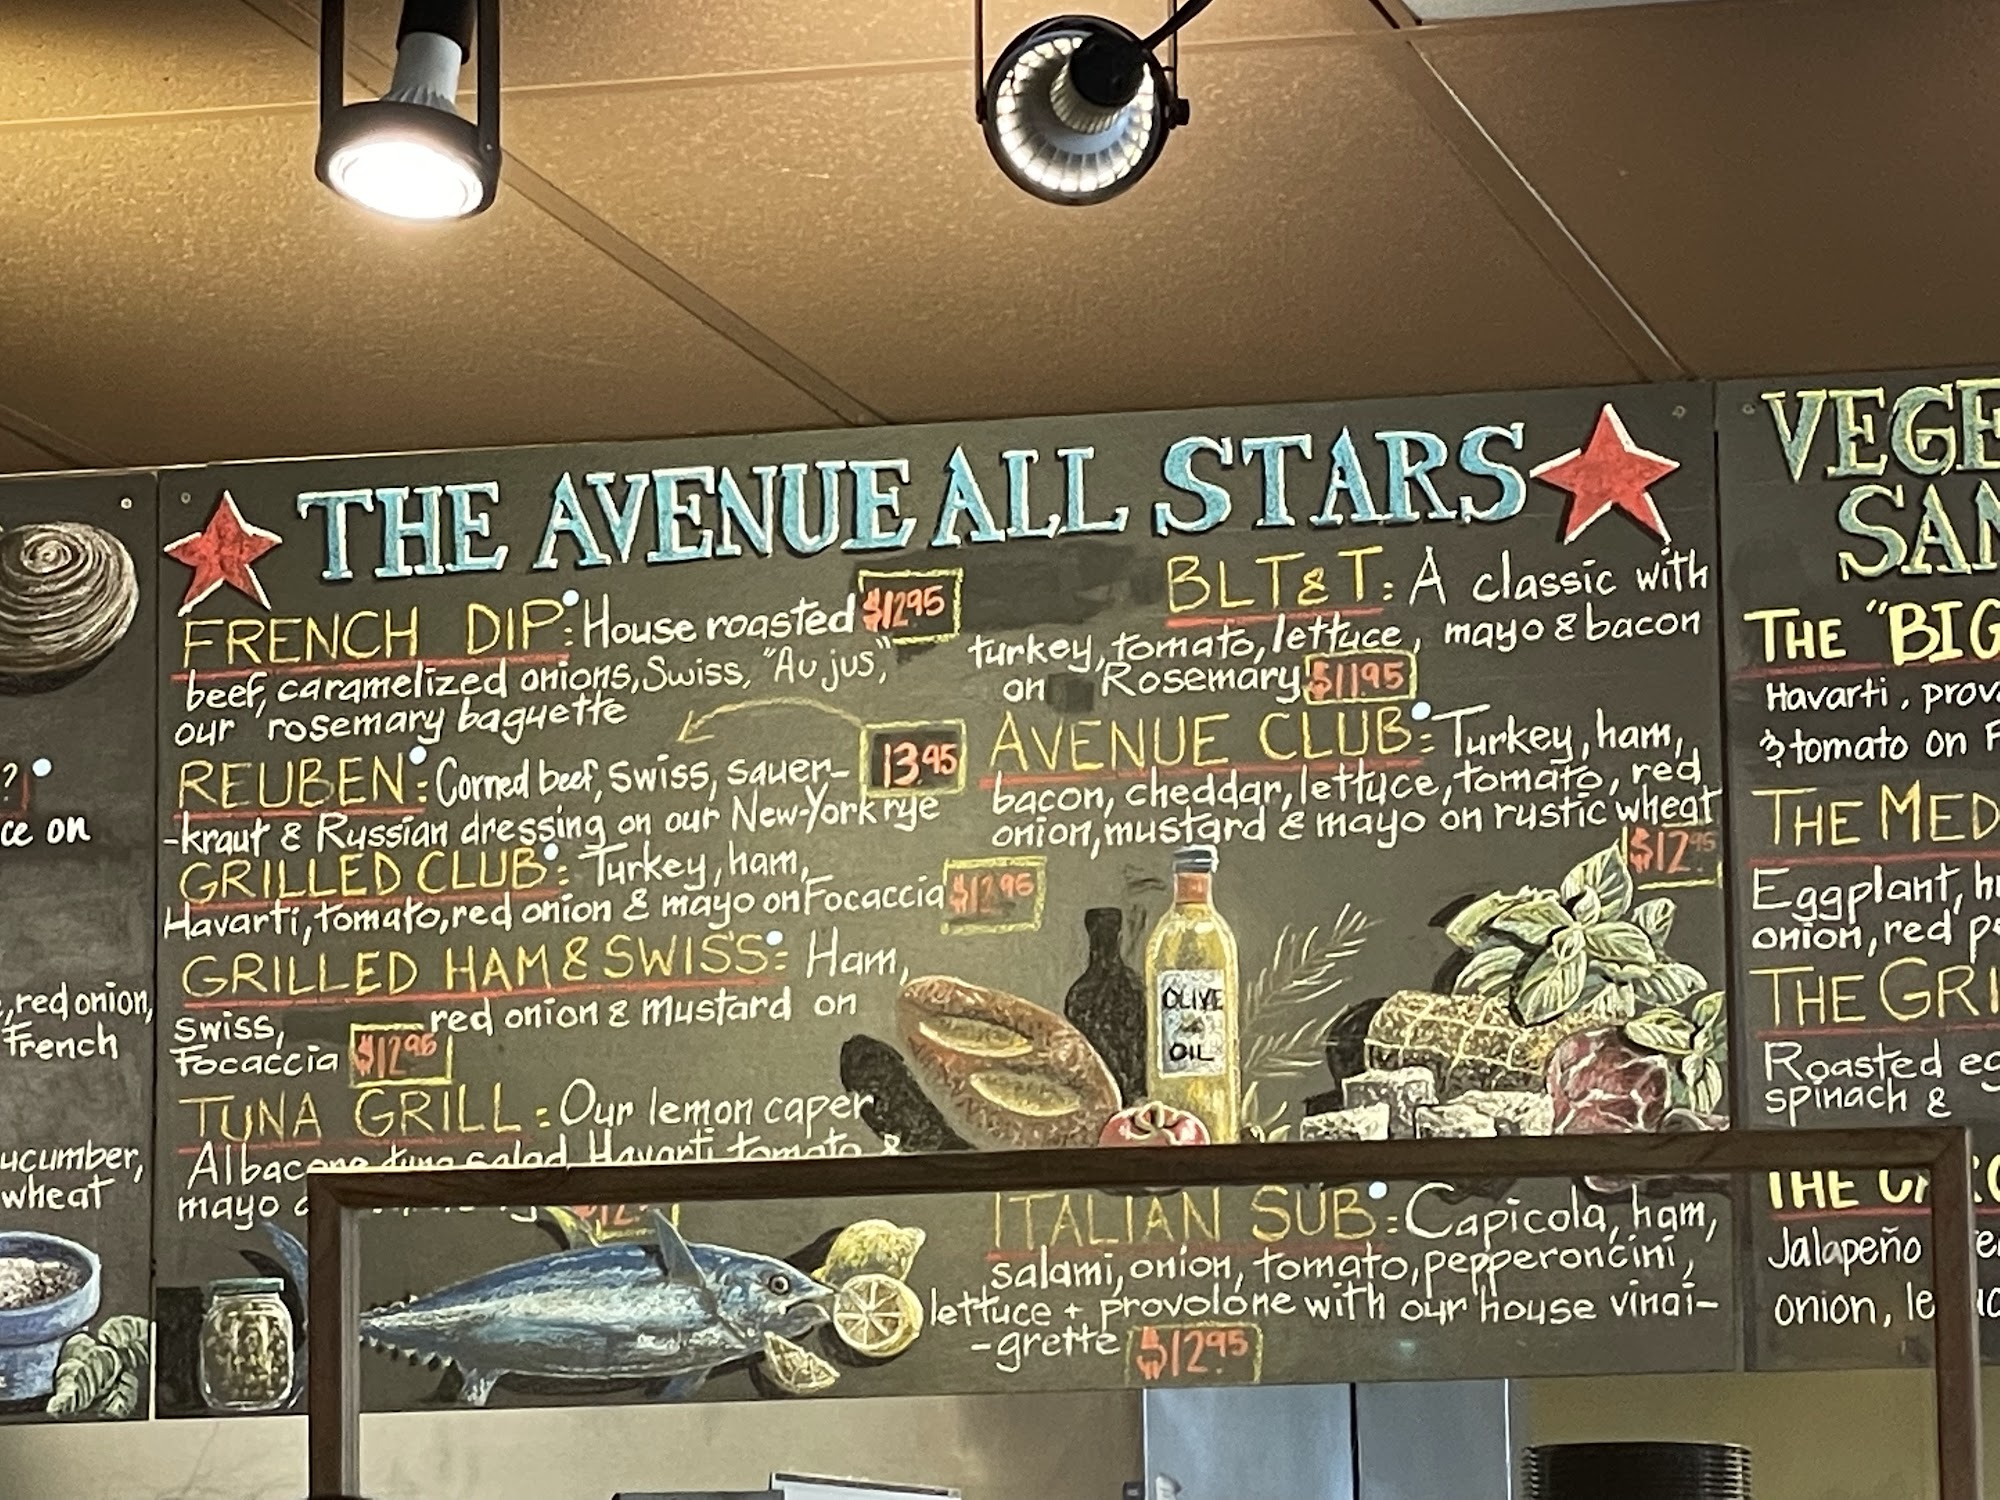 ?
ce on
red onion,
French
ucumber,
wheat
THE AVENUE ALL STARS
FRENCH DIP: House roasted $12.95
beef, caramelized onions, Swiss, "Au jus,"
our rosemary baguette
REUBEN: Corned beef, Swiss, sauer- 13.95
-kraut & Russian dressing on our New-York rye
GRILLED CLUB: Turkey, ham,
Havarti, tomato, red onion & mayo on Focaccia $12.95
GRILLED HAM & SWISS: Ham,
Swiss, red onion & mustard on
Focaccia $12.95
TUNA GRILL: Our lemon caper
Albacore tuna salad, Havarti, tomato &
mayo
BLT & T: A classic with
turkey, tomato, lettuce, mayo & bacon
on Rosemary $11.95
AVENUE CLUB: Turkey, ham,
bacon, cheddar, lettuce, tomato, red
onion, mustard & mayo on rustic wheat
$12.95
OLIVE
OIL
ITALIAN SUB: Capicola, ham,
salami, onion, tomato, pepperoncini,
lettuce + provolone with our house vinai-
-grette $12.95
VEGE
SAN
THE "BIG
Havarti, prov
& tomato on F
THE MED
Eggplant, h
onion, red pe
THE GRI
Roasted eg
spinach &
THE
Jalapeño
onion, le